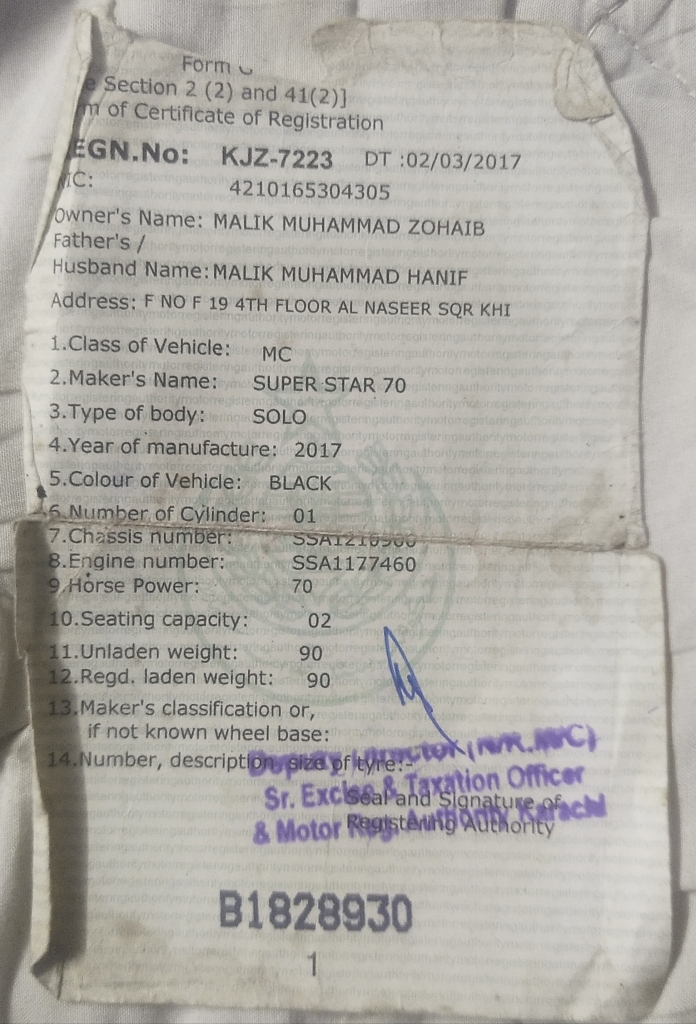 Form
Section 2 (2) and 41(2)]
m of Certificate of Registration
EGN.No: KJZ-7223 DT :02/03/2017
IC: 4210165304305
Owner's Name: MALIK MUHAMMAD ZOHAIB
Father's /
Husband Name:MALIK MUHAMMAD HANIF
Address: F NO F 19 4TH FLOOR AL NASEER SQR KHI
1.Class of Vehicle: MC
2.Maker's Name: SUPER STAR 70
3.Type of body: SOLO
4.Year of manufacture: 2017
5.Colour of Vehicle: BLACK
6.Number of Cylinder: 01
7.Chassis number:
8.Engine number: SSA1177460
9.Horse Power: 70
10.Seating capacity: 02
11.Unladen weight: 90
12.Regd. laden weight: 90
13.Maker's classification or,
if not known wheel base:
14.Number, description, size of tyre:-
Deputy Director
Sr. Excise & Taxation Officer
Seal and Signature of
& Motor Karachi
Registering Authority
B1828930
1